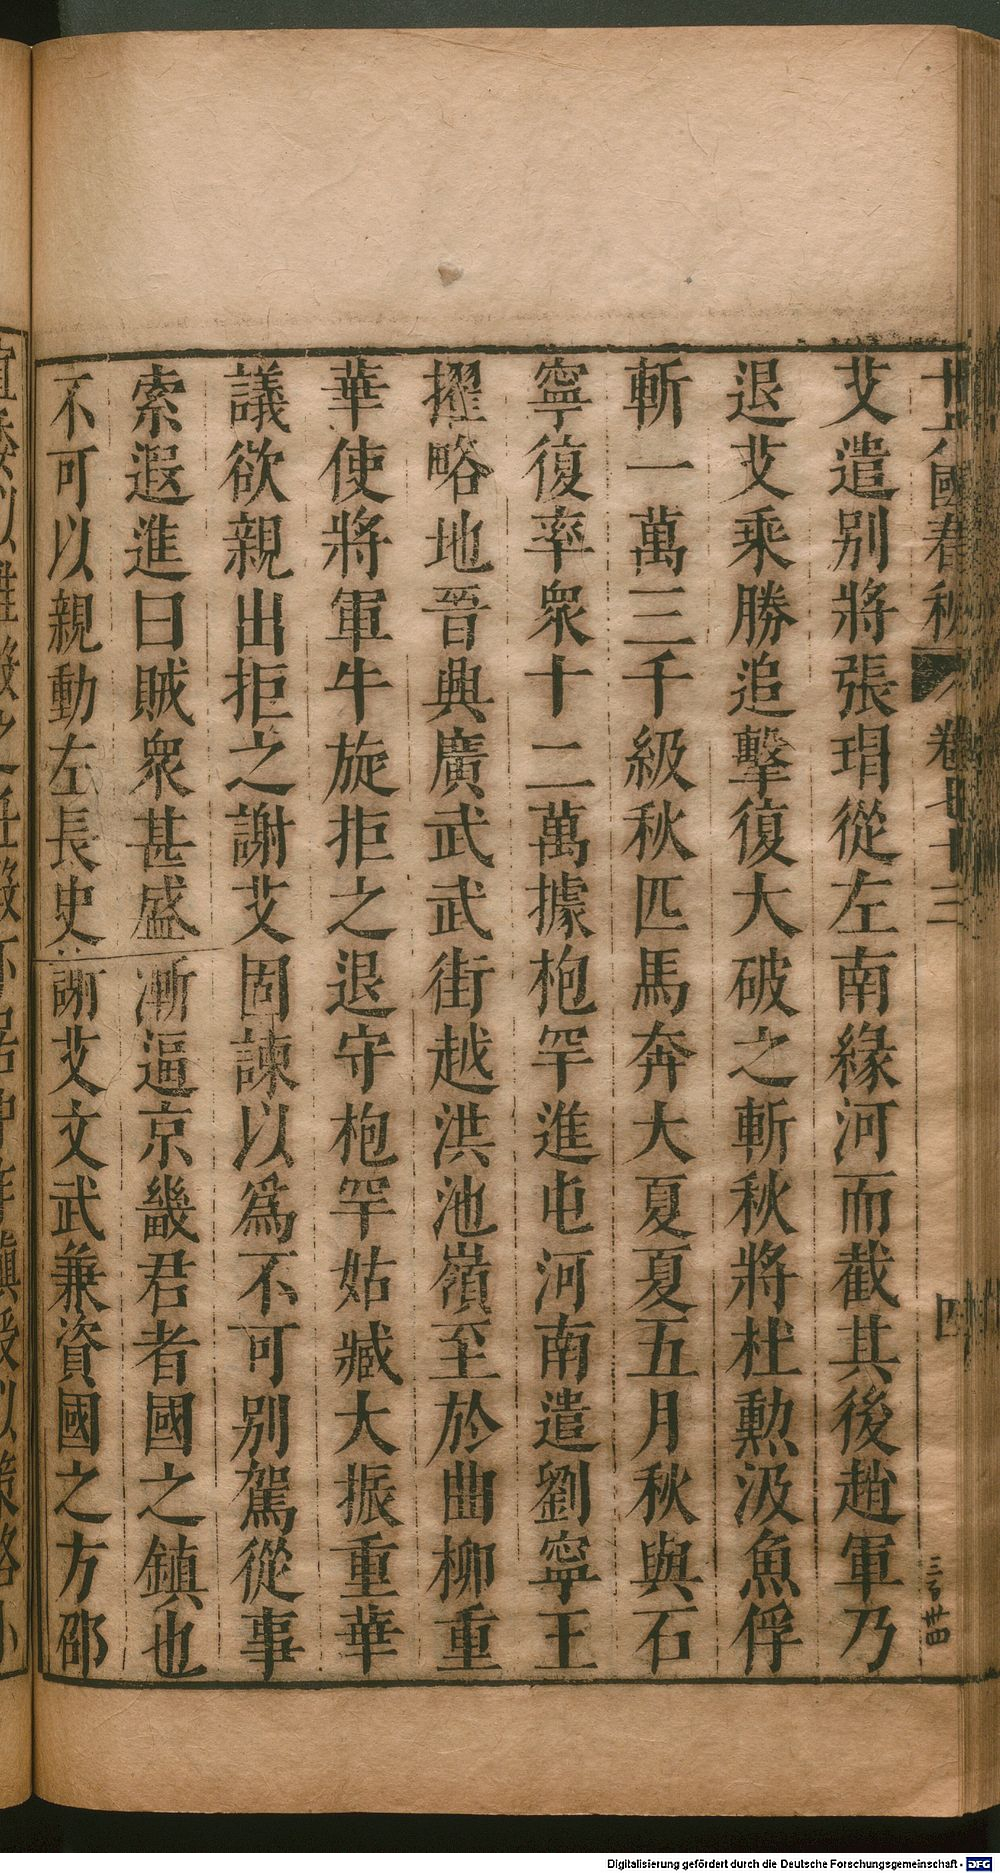 十六國春秋 卷七十三 四 三百卅四
艾遣别將張瑁從左南緣河而截其後趙軍乃
退艾乘勝追擊復大破之斬秋將杜勲汲魚俘
斬一萬三千級秋匹馬奔大夏夏五月秋與石
寧復率衆十二萬據枹罕進屯河南遣劉寧王
擢略地晉興廣武武街越洪池嶺至於曲柳重
華使將軍牛旋拒之退守枹罕姑臧大振重華
議欲親出拒之謝艾固諫以爲不可別駕從事
索遐進曰賊衆甚盛漸逼京畿君者國之鎮也
不可以親動左長史謝艾文武兼資國之方邵
Digitalisierung gefördert durch die Deutsche Forschungsgemeinschaft - DFG